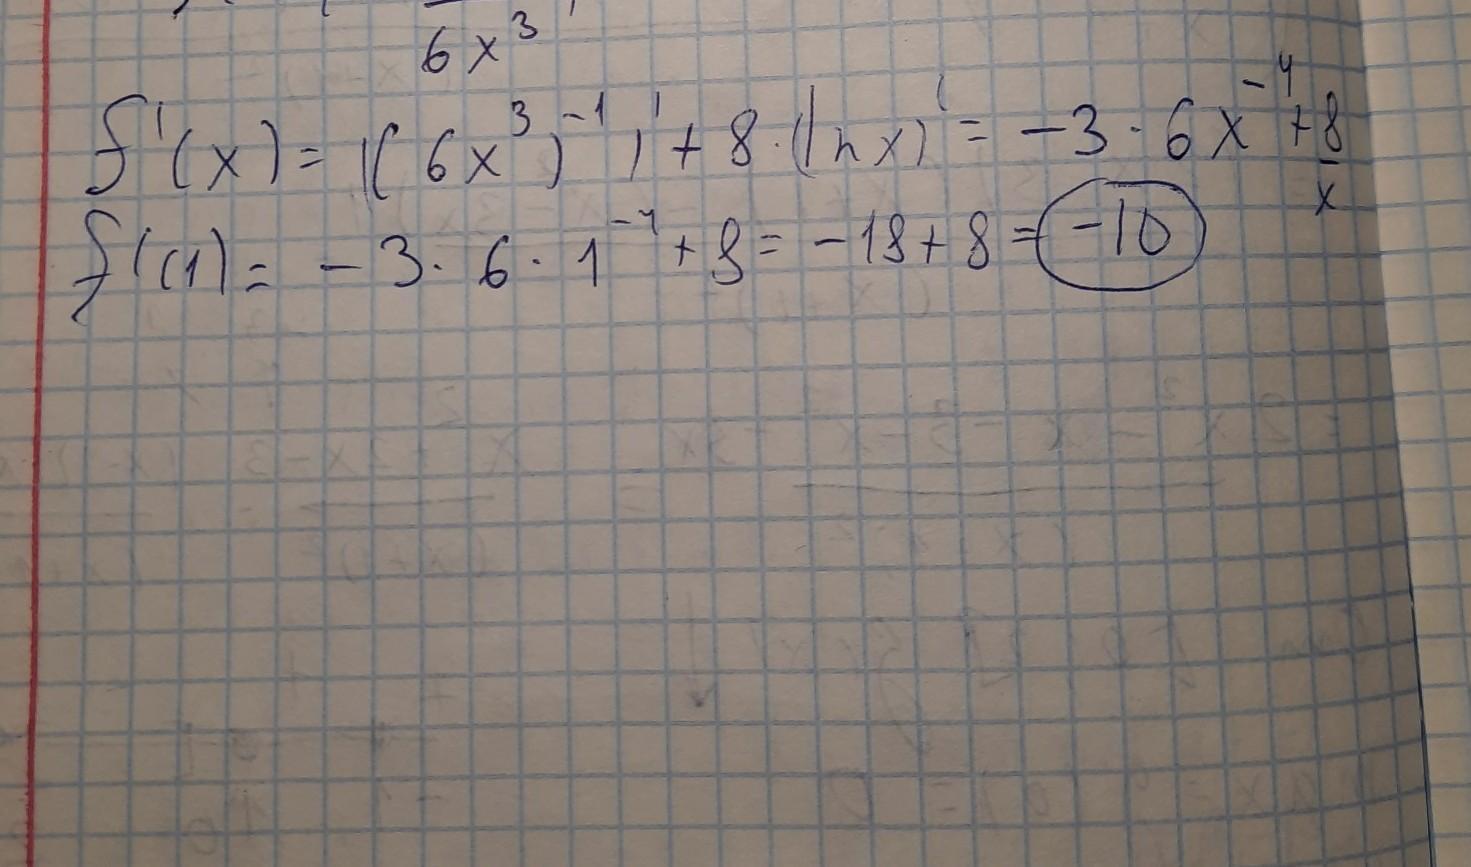 6x³
f'(x) = ((6x³)⁻¹)' + 8·(ln x)' = -3·6x⁻⁴ + 8/x
f'(1) = -3·6·1⁻⁴ + 8 = -18 + 8 = -10